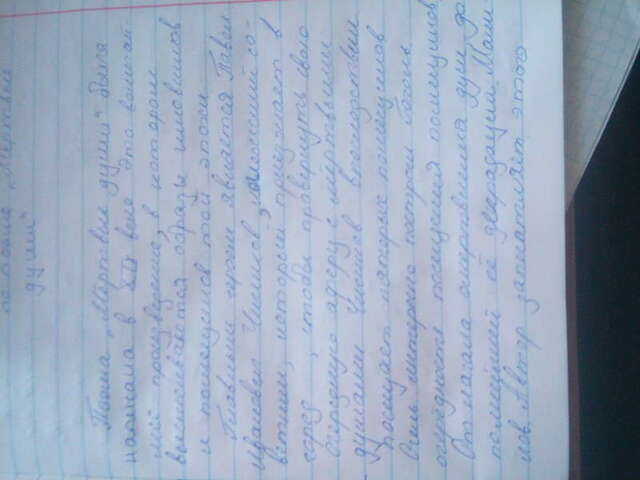 по поэме „Мёртвые
души"
Поэма „Мёртвые души" была
написана в XIX веке. Это
произведение, в котором
высмеиваются образы чиновников
и помещиков той эпохи
Главным героем является Павел
Иванович Чичиков, со-
ветник, который приезжает в
город , чтобы провернуть свою
очередную аферу с мёртвыми
душами Чичиков впоследствии
посещает пятерых помещиков
Очень интересно построил Гоголь
очерёдность посещения помещиков
От начала омертвления души до
полнейшей её деградации. Мани-
лов. Автор этого